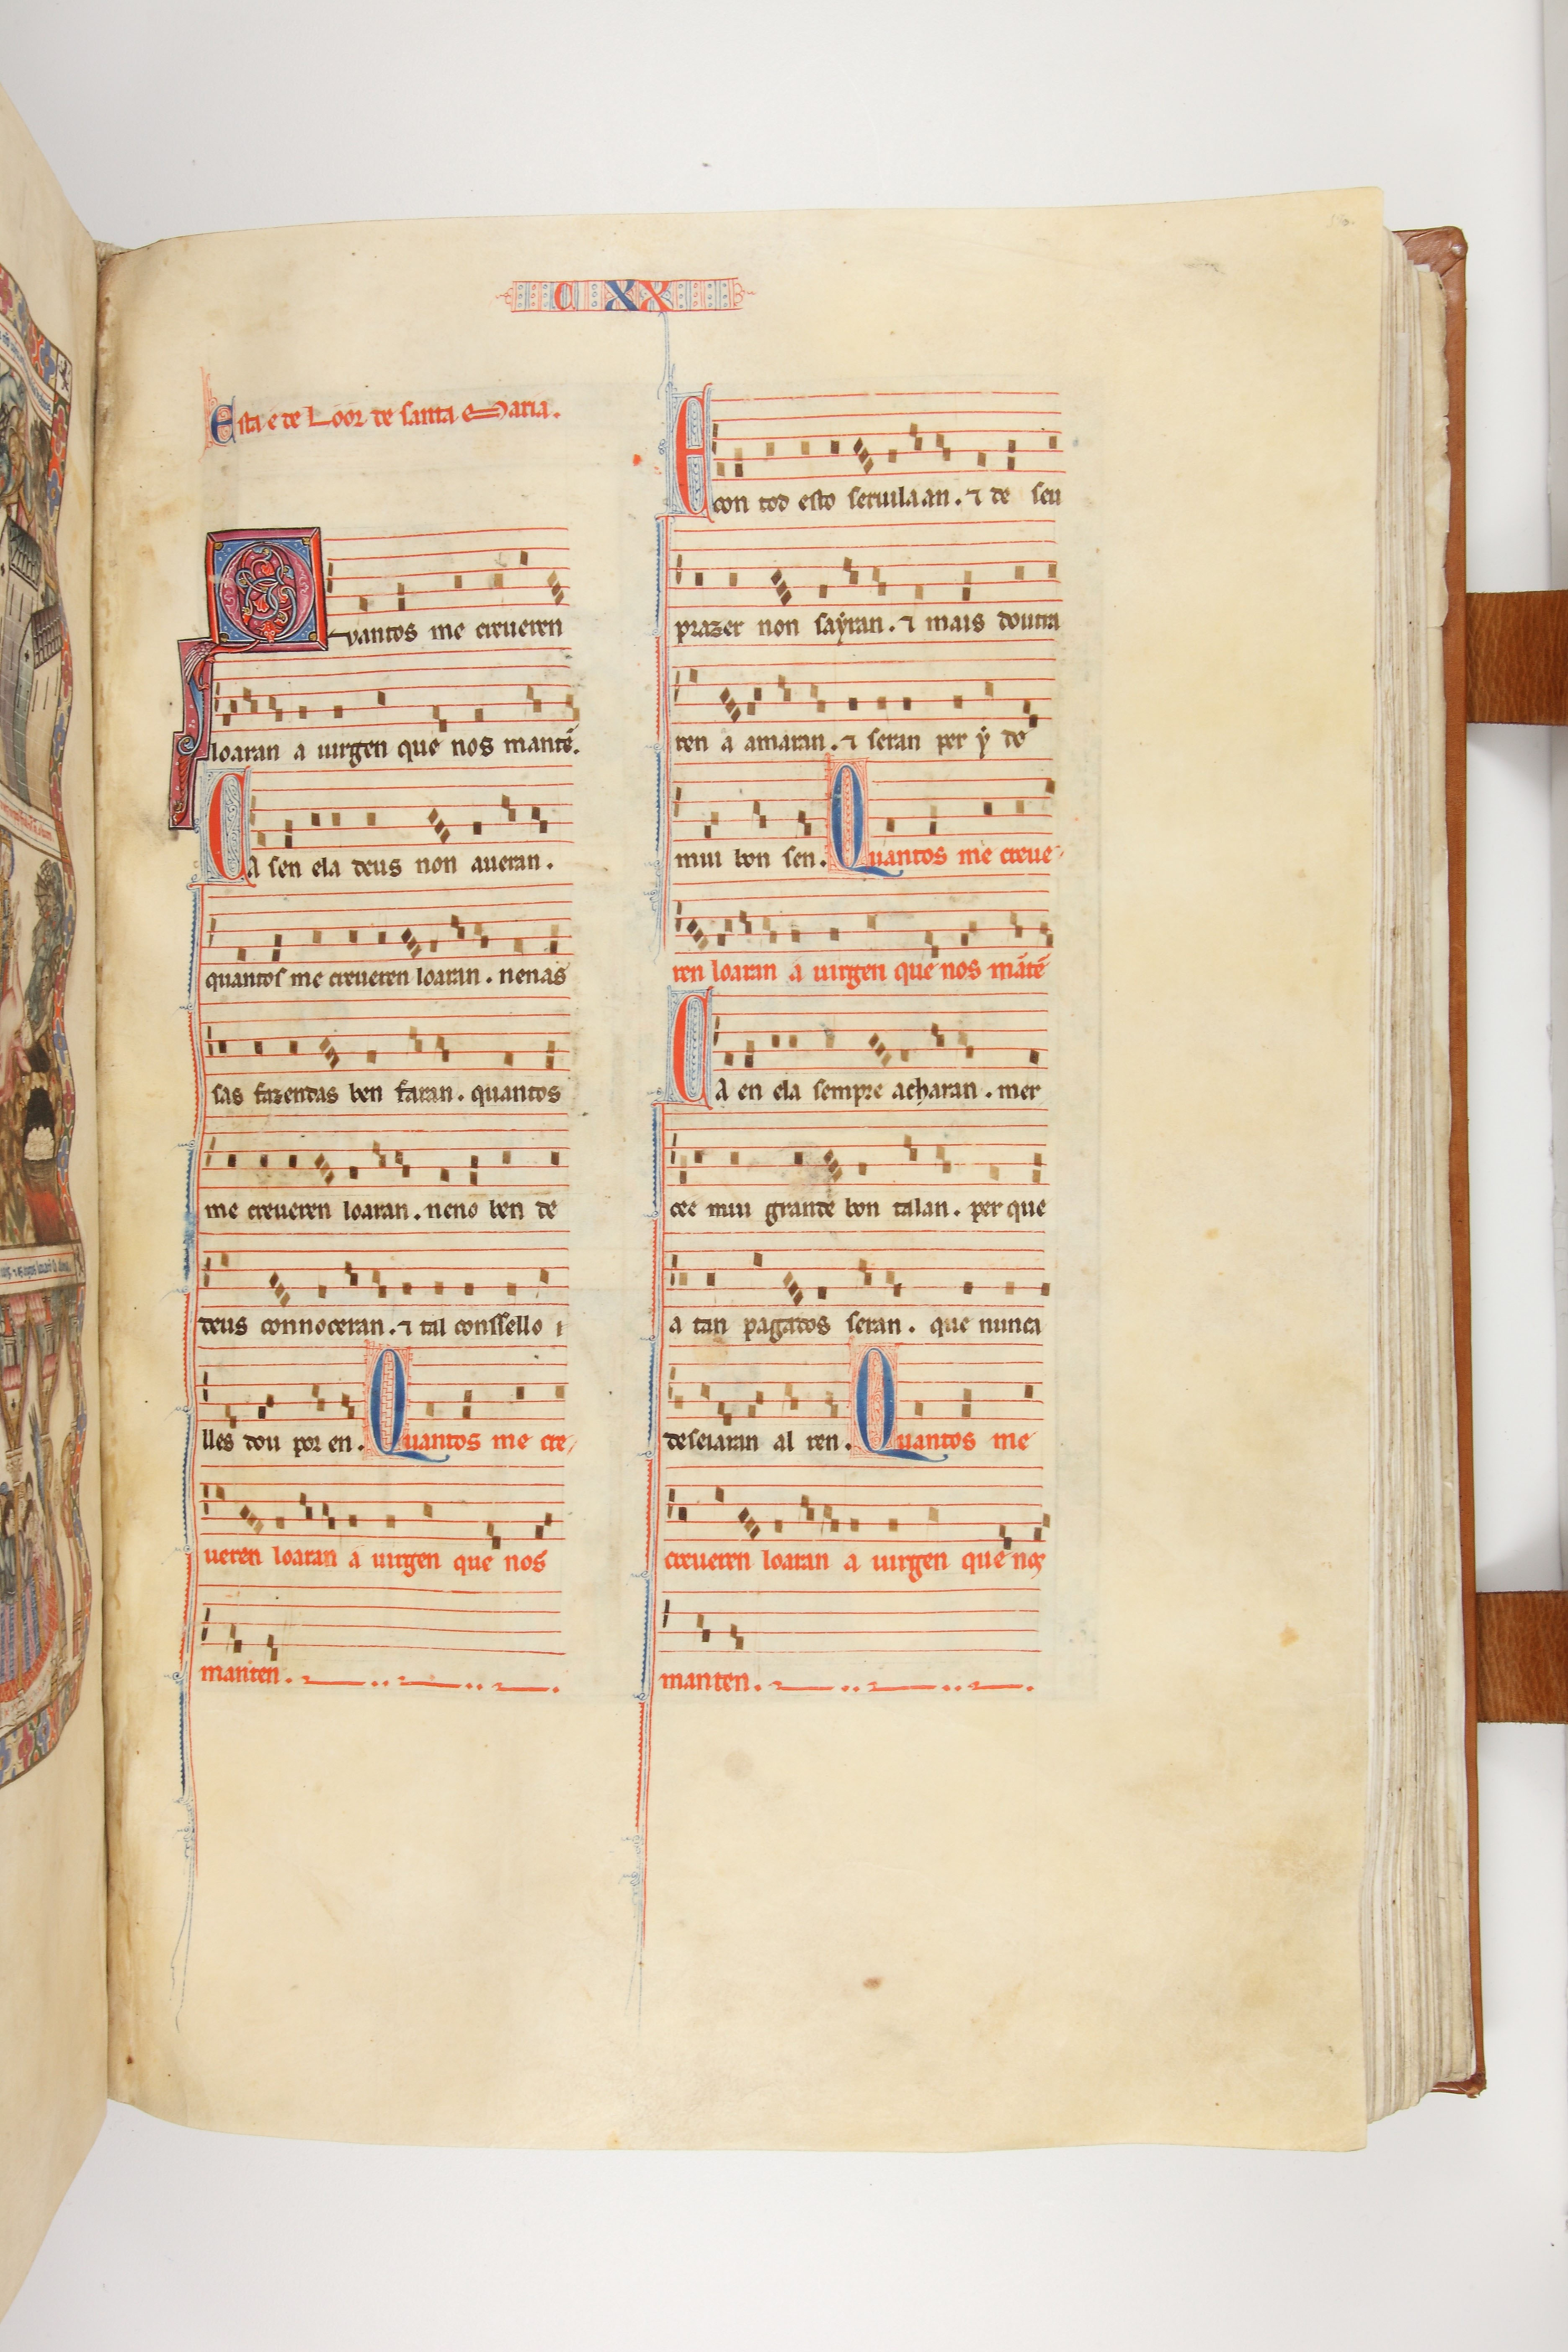 C XX
Esta e de Loor de santa Maria.
Quantos me creueren
loaran a uirgen que nos mantẽ.
Ca sen ela deus non aueran.
quantos me creueren loaran. nenas
sas fazendas ben faran. quantos
me creueren loaran. neno ben de
deus connoceran. ⁊ tal conssello
lles dou por en. Quantos me cre
ueren loaran a uirgen que nos
manten.
E con tod esto seruila an. ⁊ de seu
prazer non sayran. ⁊ mais doutra
ren a amaran. ⁊ seran per ẏ de
mui bon sen. Quantos me creue
ren loaran a uirgen que nos mãtẽ
Ca en ela sempre acharan. mer
cee mui grand e bon talan. per que
a tan pagados seran. que nunca
deseiaran al ren. Quantos me
creueren loaran a uirgen que nos
manten.